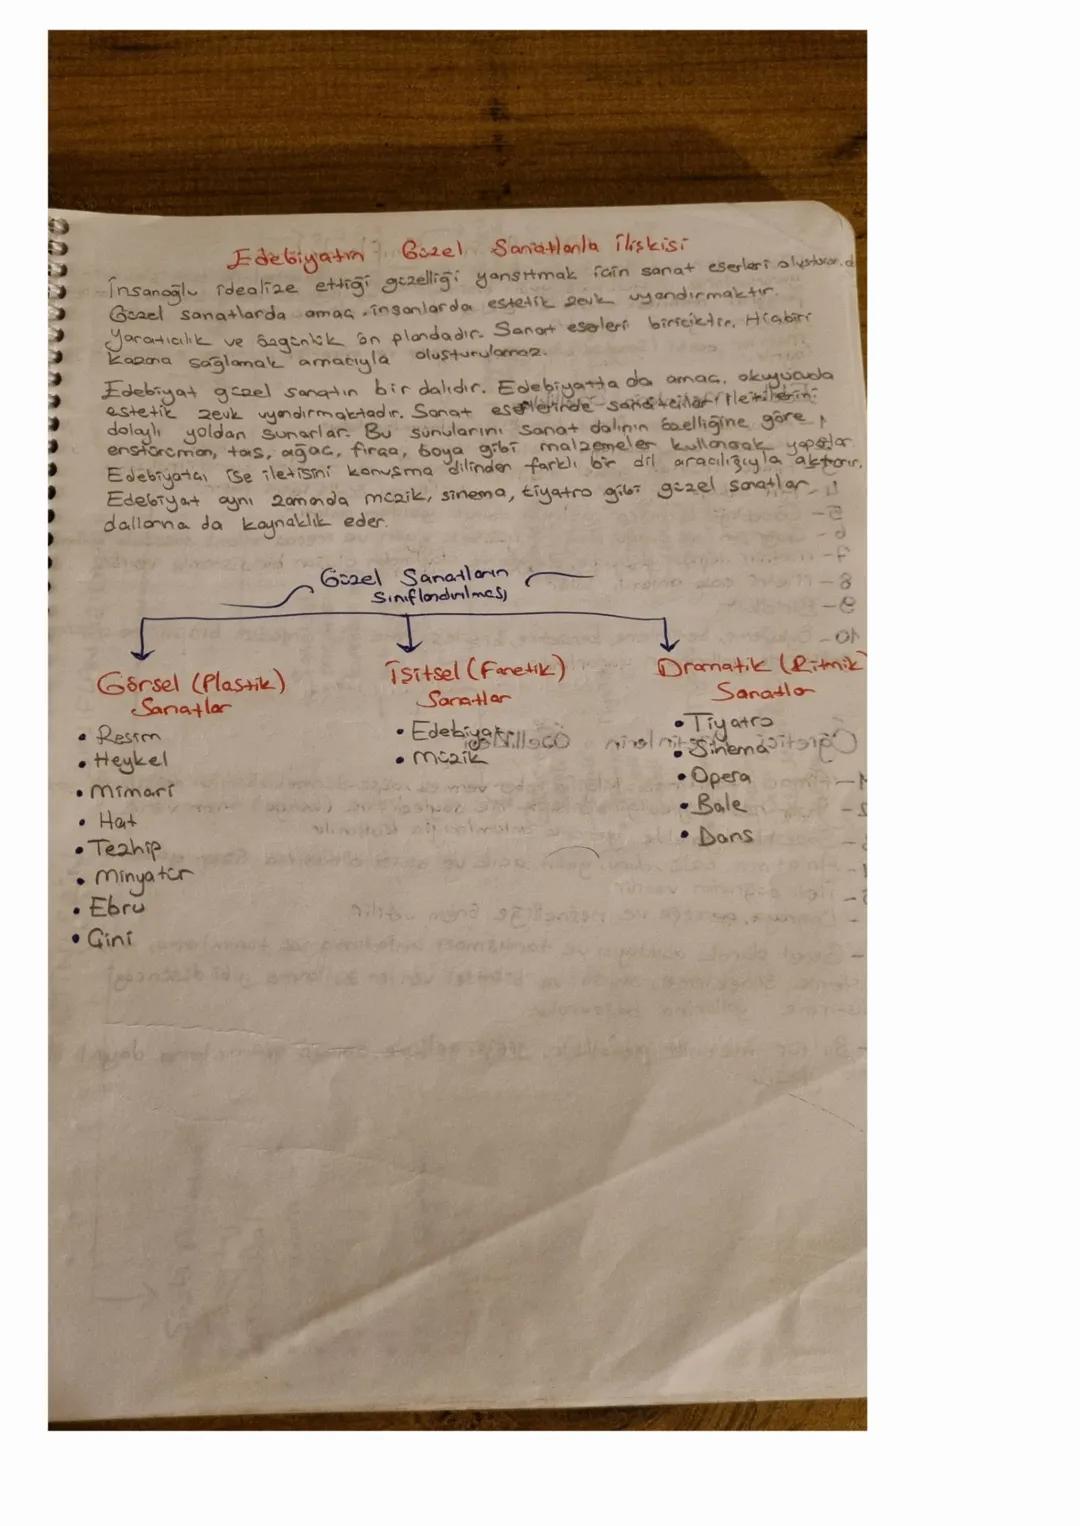 Edebiyatın Güzel Sanatlarla İlişkisi
İnsanoğlu idealize ettiği güzelliği yansıtmak için sanat eserleri
Güzel sanatlarda amaç insanlarda estetik zevk uyandırmaktır.
Yaratıcılık ve özgünlük ön plandadır. Sanat eserleri biriciktir. Hiçbiri
kazanç sağlamak amacıyla oluşturulamaz.
Edebiyat güzel sanatın bir dalıdır. Edebiyatta da amaç, okuyucuda
estetik zevk uyandırmaktadır. Sanat eserlerinde sanatçılar iletilerini
dolaylı yoldan sunarlar. Bu sunularını sanat dalının özelliğine göre
enstürüman, taş, ağaç, fırça, boya gibi malzemeler kullanarak yaparlar.
Edebiyatçı ise iletisini konuşma dilinden farklı bir dil aracılığıyla aktarır.
Edebiyat aynı zamanda müzik, sinema, tiyatro gibi güzel sanatlar
dallarına da kaynaklık eder.
Güzel Sanatların
Sınıflandırılması
Görsel (Plastik)
Sanatlar
• Resim
• Heykel
• Mimari
• Hat
• Tezhip
• Minyatür
• Ebru
• Çini
İşitsel (Fonetik)
Sanatlar
• Edebiyat
• Müzik
Dramatik (Ritmik)
Sanatlar
• Tiyatro
• Sinema
• Opera
• Bale
• Dans